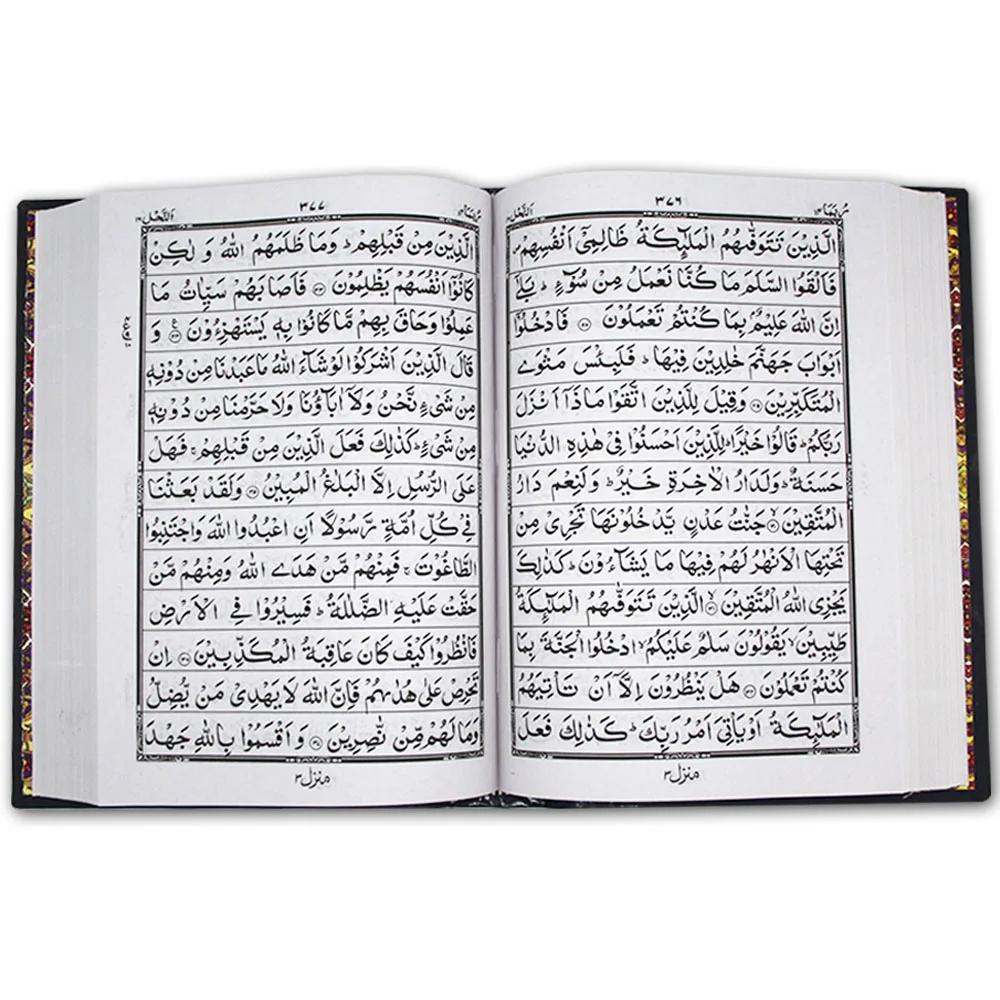 رُبَمَا ١٤
٣٧٦
اَلنَّحۡل ١٦
الَّذِيۡنَ تَتَوَفّٰٮهُمُ الۡمَلٰٓئِكَةُ ظَالِمِىۡۤ اَنۡفُسِهِمۡ
فَاَلۡقَوُا السَّلَمَ مَا كُنَّا نَعۡمَلُ مِنۡ سُوۡٓءٍ ؕ بَلٰٓى
اِنَّ اللّٰهَ عَلِيۡمٌۢ بِمَا كُنۡتُمۡ تَعۡمَلُوۡنَ ﴿۲۸﴾ فَادۡخُلُوۡۤا
اَبۡوَابَ جَهَنَّمَ خٰلِدِيۡنَ فِيۡهَا ؕ فَلَبِئۡسَ مَثۡوَى
الۡمُتَكَبِّرِيۡنَ ﴿۲۹﴾ وَقِيۡلَ لِلَّذِيۡنَ اتَّقَوۡا مَاذَاۤ اَنۡزَلَ
رَبُّكُمۡ ؕ قَالُوۡا خَيۡرًا ؕ لِلَّذِيۡنَ اَحۡسَنُوۡا فِىۡ هٰذِهِ الدُّنۡيَا
حَسَنَةٌ ؕ وَلَدَارُ الۡاٰخِرَةِ خَيۡرٌ ؕ وَلَنِعۡمَ دَارُ
الۡمُتَّقِيۡنَ ﴿۳۰﴾ جَنّٰتُ عَدۡنٍ يَّدۡخُلُوۡنَهَا تَجۡرِىۡ مِنۡ
تَحۡتِهَا الۡاَنۡهٰرُ لَهُمۡ فِيۡهَا مَا يَشَآءُوۡنَ ؕ كَذٰلِكَ
يَجۡزِى اللّٰهُ الۡمُتَّقِيۡنَ ﴿۳۱﴾ الَّذِيۡنَ تَتَوَفّٰٮهُمُ الۡمَلٰٓئِكَةُ
طَيِّبِيۡنَ ۙ يَقُوۡلُوۡنَ سَلٰمٌ عَلَيۡكُمُ ۙ ادۡخُلُوا الۡجَنَّةَ بِمَا
كُنۡتُمۡ تَعۡمَلُوۡنَ ﴿۳۲﴾ هَلۡ يَنۡظُرُوۡنَ اِلَّاۤ اَنۡ تَاۡتِيَهُمُ
الۡمَلٰٓئِكَةُ اَوۡ يَاۡتِىَ اَمۡرُ رَبِّكَ ؕ كَذٰلِكَ فَعَلَ
منزل ۳
رُبَمَا ١٤
٣٧٧
اَلنَّحۡل ١٦
الَّذِيۡنَ مِنۡ قَبۡلِهِمۡ ؕ وَمَا ظَلَمَهُمُ اللّٰهُ وَ لٰكِنۡ
كَانُوۡۤا اَنۡفُسَهُمۡ يَظۡلِمُوۡنَ ﴿۳۳﴾ فَاَصَابَهُمۡ سَيِّاٰتُ مَا
عَمِلُوۡا وَحَاقَ بِهِمۡ مَّا كَانُوۡا بِهٖ يَسۡتَهۡزِءُوۡنَ ﴿۳۴﴾ وَ
قَالَ الَّذِيۡنَ اَشۡرَكُوۡا لَوۡ شَآءَ اللّٰهُ مَا عَبَدۡنَا مِنۡ دُوۡنِهٖ
مِنۡ شَىۡءٍ نَّحۡنُ وَلَاۤ اٰبَآؤُنَا وَلَا حَرَّمۡنَا مِنۡ دُوۡنِهٖ
مِنۡ شَىۡءٍ ؕ كَذٰلِكَ فَعَلَ الَّذِيۡنَ مِنۡ قَبۡلِهِمۡ ۚ فَهَلۡ
عَلَى الرُّسُلِ اِلَّا الۡبَلٰغُ الۡمُبِيۡنُ ﴿۳۵﴾ وَلَقَدۡ بَعَثۡنَا
فِىۡ كُلِّ اُمَّةٍ رَّسُوۡلًا اَنِ اعۡبُدُوا اللّٰهَ وَاجۡتَنِبُوا
الطَّاغُوۡتَ ۚ فَمِنۡهُمۡ مَّنۡ هَدَى اللّٰهُ وَمِنۡهُمۡ مَّنۡ
حَقَّتۡ عَلَيۡهِ الضَّلٰلَةُ ؕ فَسِيۡرُوۡا فِى الۡاَرۡضِ
فَانْظُرُوۡا كَيۡفَ كَانَ عَاقِبَةُ الۡمُكَذِّبِيۡنَ ﴿۳۶﴾ اِنۡ
تَحۡرِصۡ عَلٰى هُدٰٮهُمۡ فَاِنَّ اللّٰهَ لَا يَهۡدِىۡ مَنۡ يُّضِلُّ
وَمَا لَهُمۡ مِّنۡ نّٰصِرِيۡنَ ﴿۳۷﴾ وَ اَقۡسَمُوۡا بِاللّٰهِ جَهۡدَ
منزل ۳